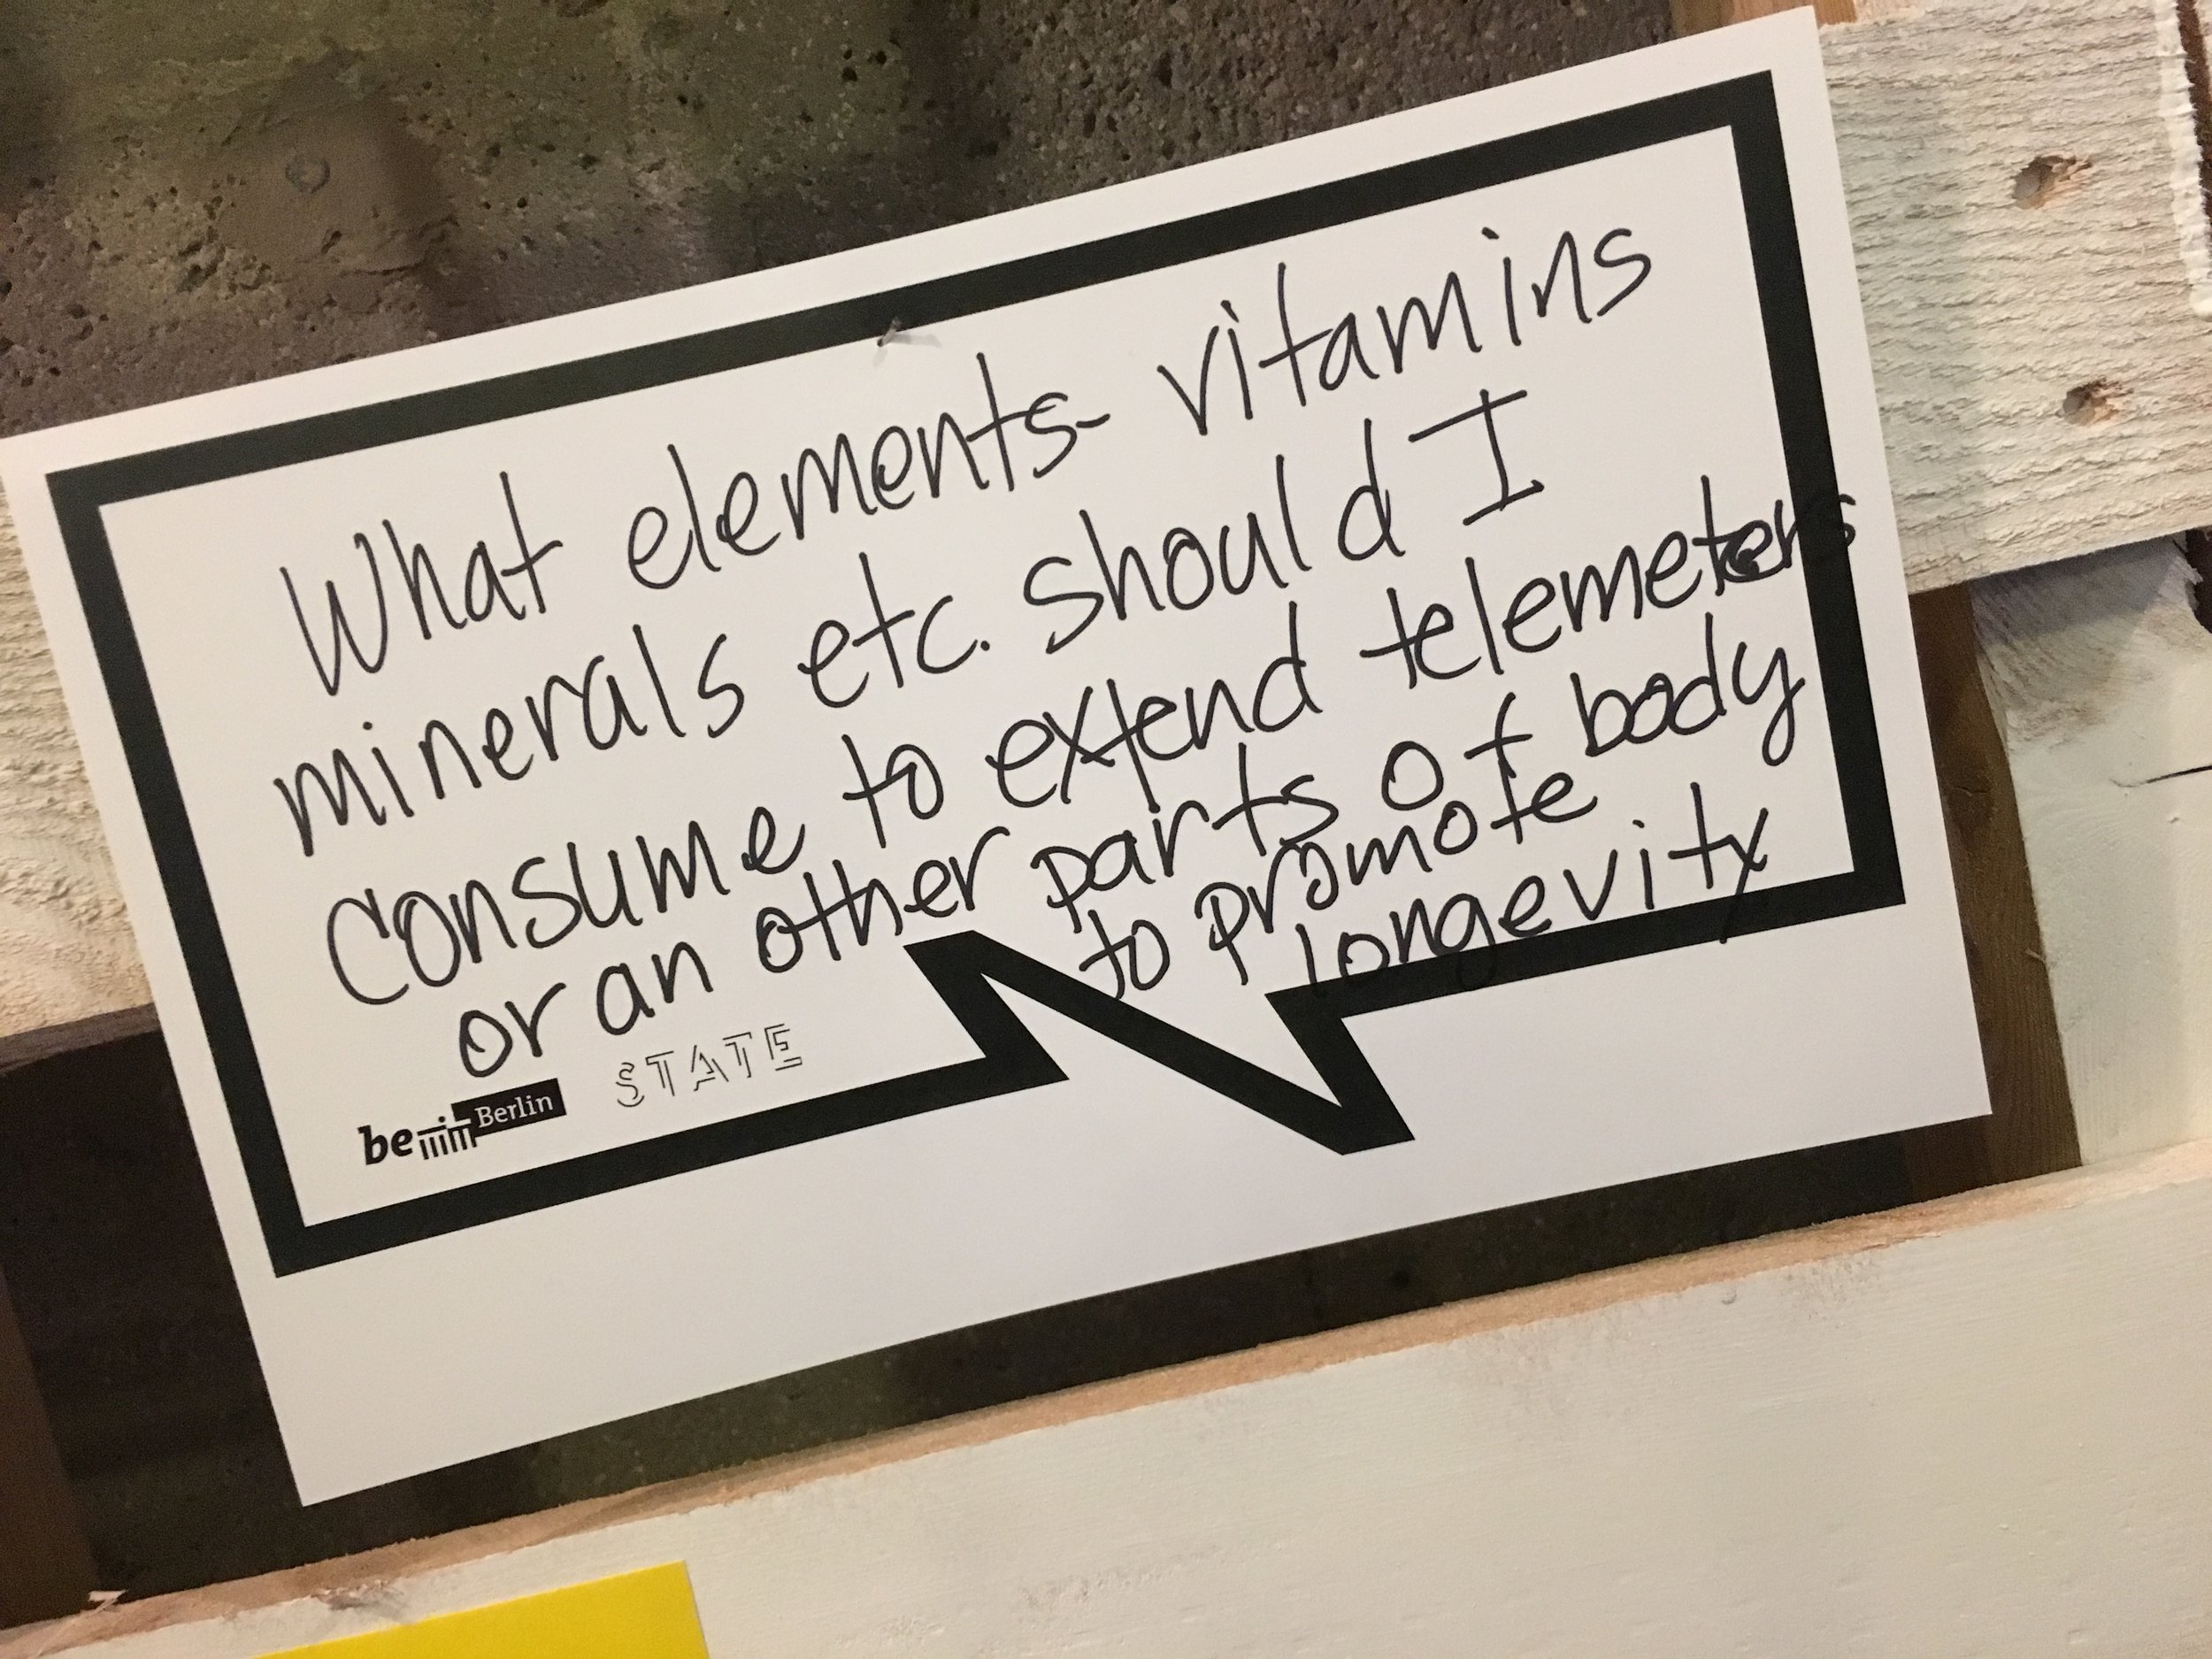 What elements- vitamins
minerals etc. should I
consume to extend telemeters
or an other parts of body
to promote
longevity
be Berlin
STATE